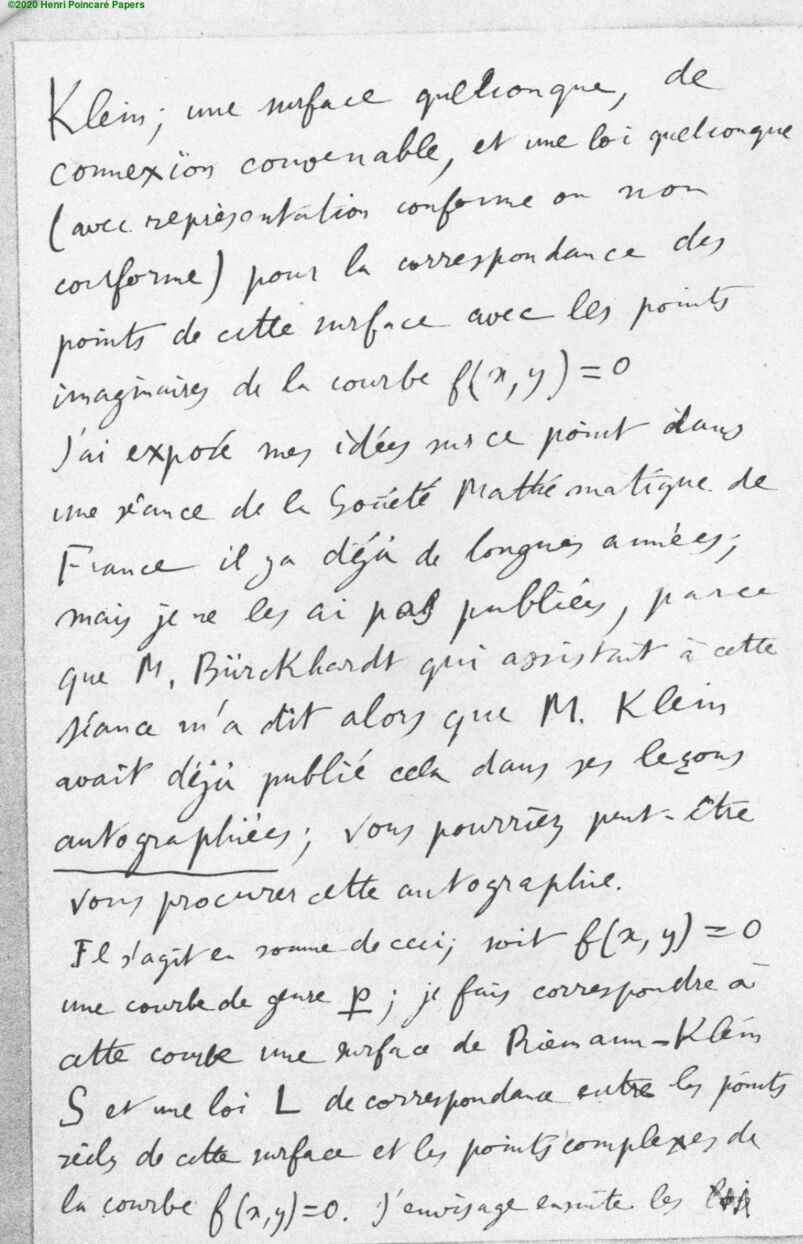 ©2020 Henri Poincaré Papers
Klein; une surface quelconque, de
connexion convenable, et une loi quelconque
(avec représentation conforme ou non
conforme) pour la correspondance des
points de cette surface avec les points
imaginaires de la courbe f(x,y)=0
J'ai exposé mes idées sur ce point dans
une séance de la Société Mathématique de
France il y a déjà de longues années;
mais je ne les ai pas publiées, parce
que M. Bürckhardt qui assistait à cette
séance m'a dit alors que M. Klein
avait déjà publié cela dans ses leçons
autographiées; vous pourriez peut-être
vous procurer cette autographie.
Il s'agit en somme de ceci; soit f(x,y)=0
une courbe de genre p; je fais correspondre à
cette courbe une surface de Riemann-Klein
S et une loi L de correspondance entre les points
réels de cette surface et les points complexes de
la courbe f(x,y)=0. J'envisage ensuite les